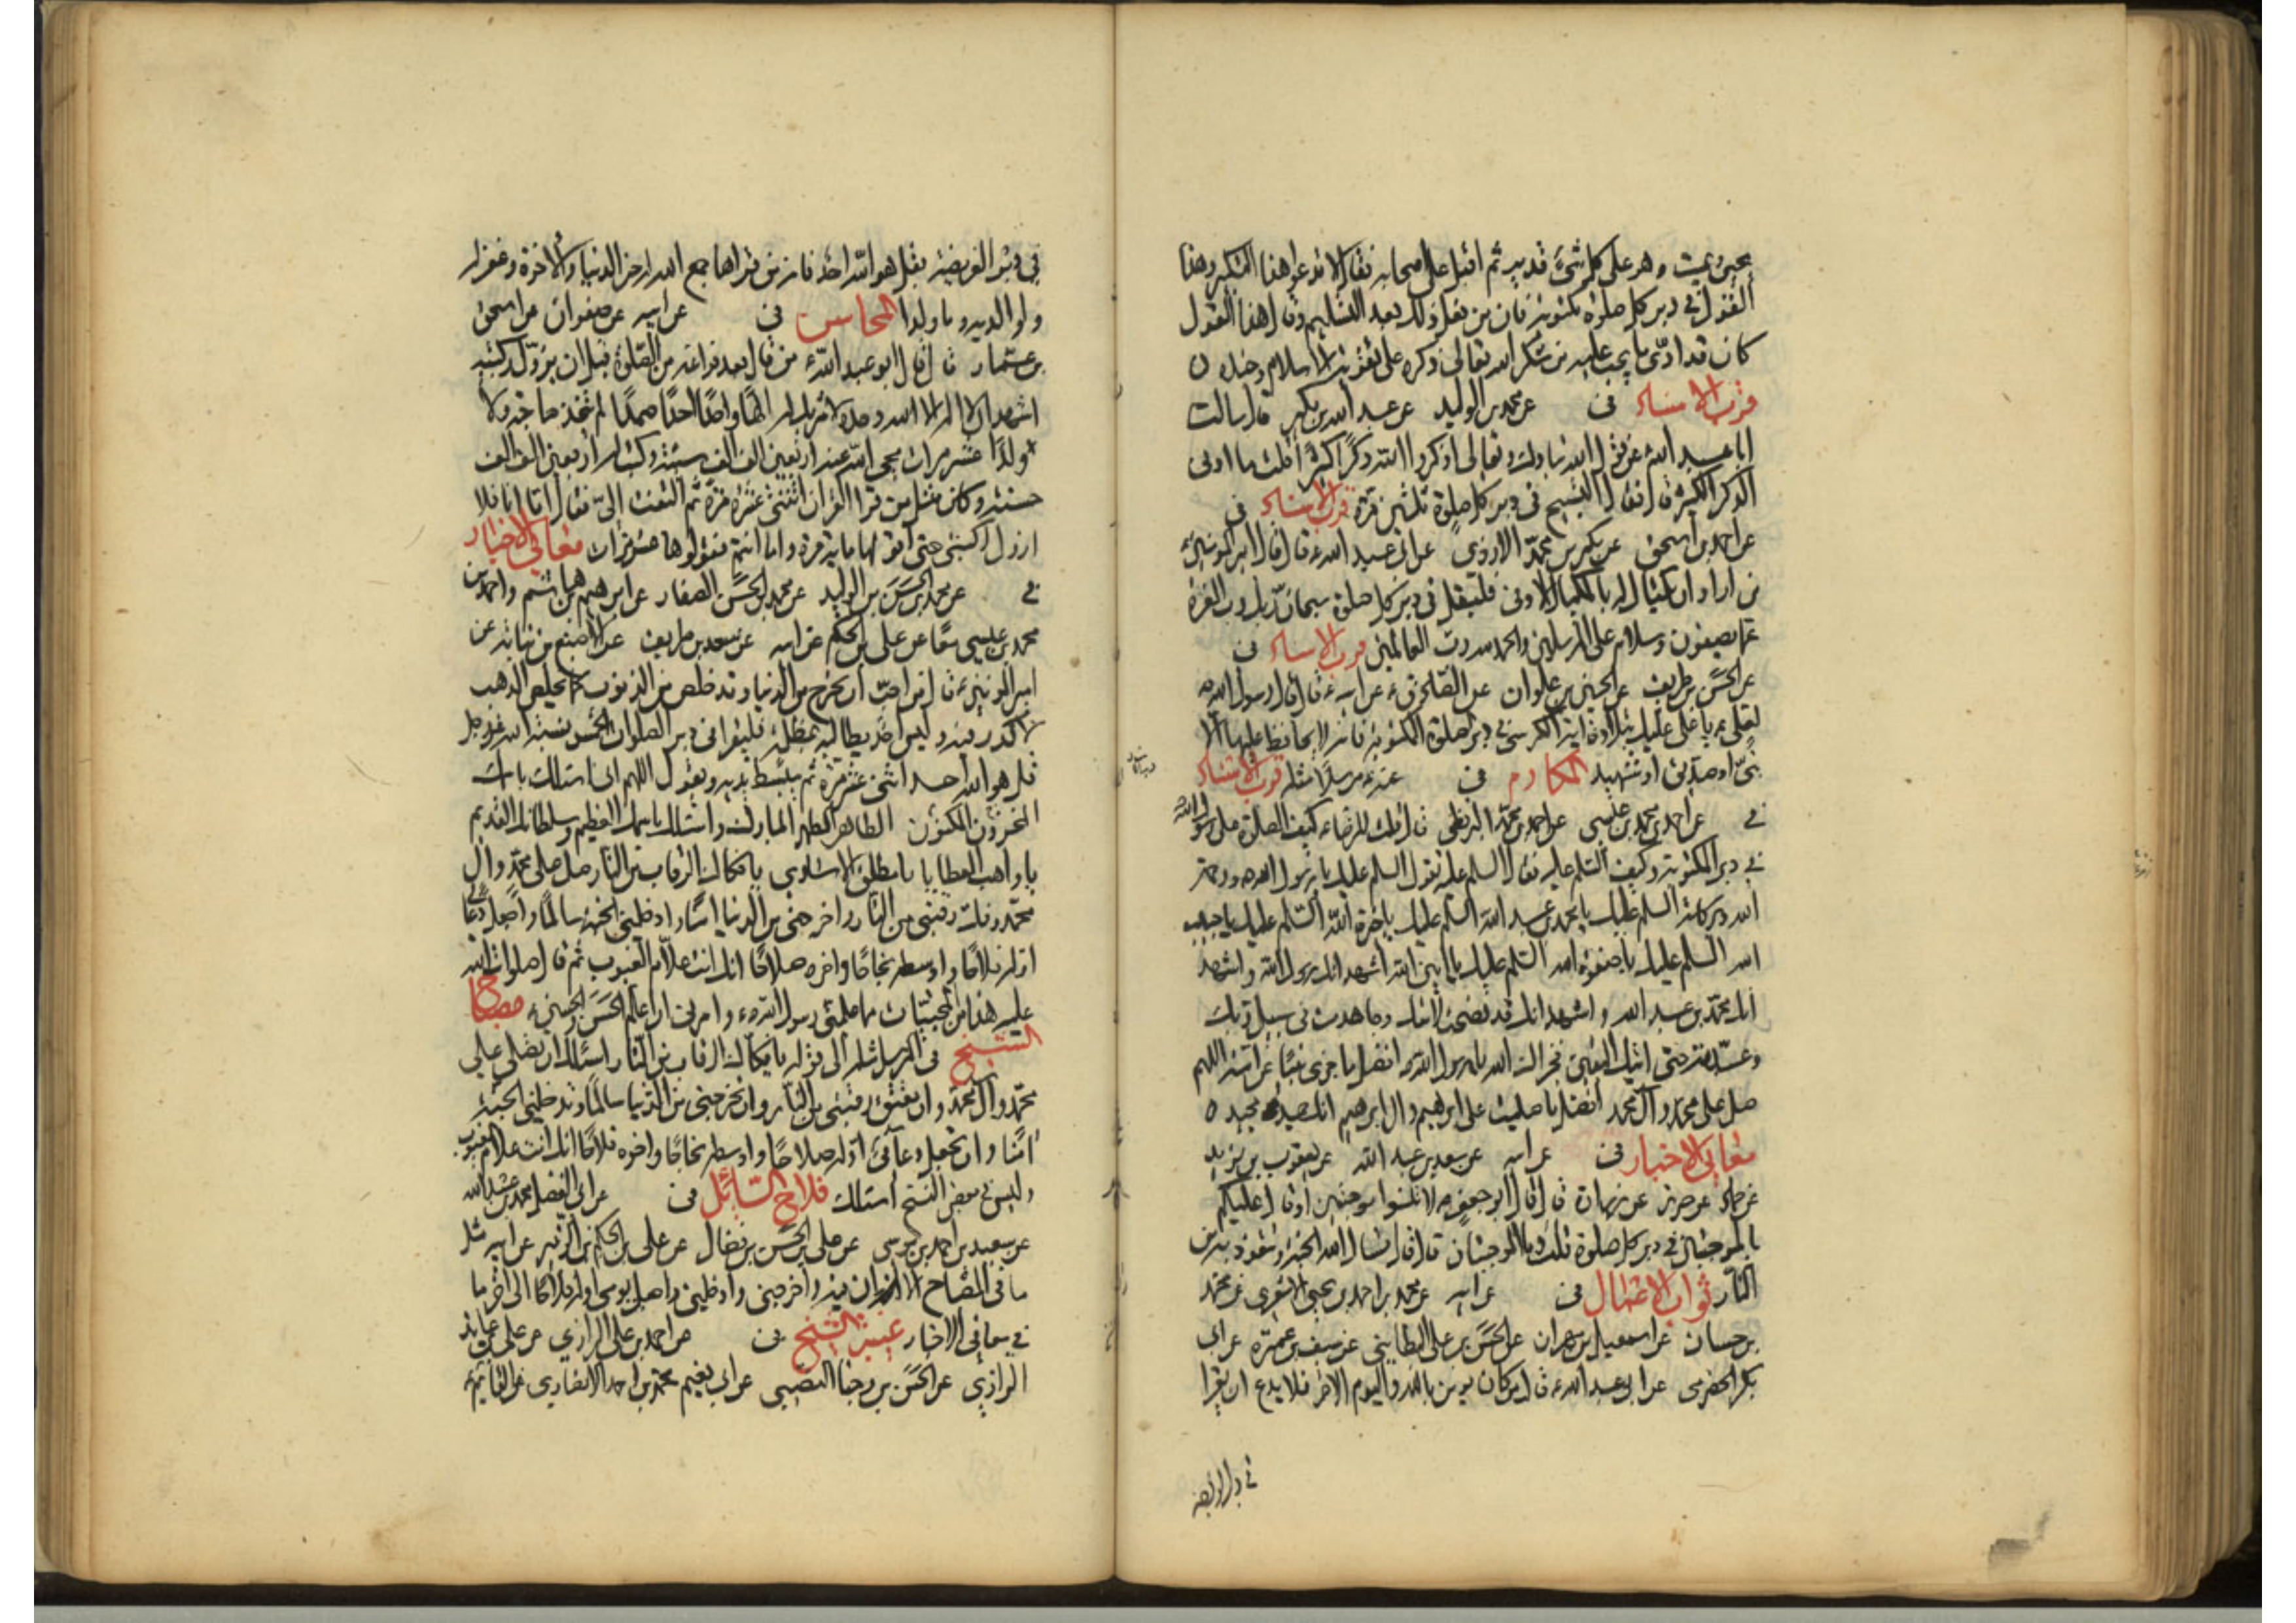 يحيي ويميت وهو على كل شيء قدير ثم اقبل على اصحابه فقال لا تدعوا هذا التكبير وهذا
القول في دبر كل صلوة مكتوبة فان من فعل ذلك بعد التسليم وقال هذا القول
كان قد ادى ما يجب عليه من شكر الله تعالى ذكره على تقوية الاسلام وجنده
قرب الاسناد في عن محمد بن الوليد عن عبد الله بن بكير قال سالت
ابا عبد الله عن قول الله تبارك وتعالى اذكروا الله ذكرًا كثيرًا قلت ما ادنى
الذكر الكثير قال فقال التسبيح في دبر كل صلوة ثلثين مرة قرب الاسناد في
عن احمد بن اسحق عن بكر بن محمد الازدي عن ابي عبد الله ع قال قال امير المومنين ع
من اراد ان يكتال له بالمكيال الاوفى فليقل في دبر كل صلوة سبحان ربك رب العزة
عما يصفون وسلام على المرسلين والحمد لله رب العالمين قرب الاسناد في
عن الحسن بن ظريف عن الحسين بن علوان عن الصادق ع عن ابيه ع قال قال رسول الله ص
لعلي ع يا علي عليك بتلاوة اية الكرسي في دبر صلوة المكتوبة فانه لا يحافظ عليها الا
نبي او صديق او شهيد المكارم في عنه ع مرسلا مثله قرب الاسناد
في عن احمد بن محمد بن عيسى عن احمد بن محمد البزنطي قال قلت للرضا ع كيف الصلوة على رسول الله ص
في دبر المكتوبة وكيف السلم عليه فقال السلم عليه تقول السلم عليك يا رسول الله ورحمة
الله وبركاته السلم عليك يا محمد بن عبد الله السلم عليك يا خيرة الله السلم عليك يا حبيب
الله السلم عليك يا صفوة الله السلم عليك يا امين الله اشهد انك رسول الله واشهد
انك محمد بن عبد الله واشهد انك قد نصحت لامتك وجاهدت في سبيل ربك
وعبدته حتى اتيك اليقين فجزاك الله يا رسول الله افضل ما جزى نبيًا عن امته اللهم
صل على محمد وآل محمد افضل ما صليت على ابرهيم وال ابرهيم انك حميد مجيد
معاني الاخبار في عن ابيه عن سعد بن عبد الله عن يعقوب بن يزيد
عن حماد عن حريز عن زرارة قال قال ابو جعفر ع لا تنسوا الموجبتين او قال عليكم
بالموجبتين في دبر كل صلوة قلت وما الموجبتان قال تسال الله الجنة وتتعوذ به من
النار ثواب الاعمال في عن ابيه عن محمد بن احمد بن يحيى الاشعري عن محمد
بن حسان عن اسمعيل بن مهران عن الحسن بن علي البطايني عن سيف بن عميرة عن ابي
بكر الحضرمي عن ابي عبد الله ع قال من كان يومن بالله واليوم الاخر فلا يدع ان يقرا
في دبر الفريضة
في دبر الفريضة بقل هو الله احد فانه من قراها جمع الله له خير الدنيا والاخرة وغفر له
ولوالديه وما ولدا المحاسن في عن ابيه عن صفوان عن اسحق
بن عمار قال قال ابو عبد الله ع من قال بعد فراغه من الصلوة قبل ان يزول ركبتيه
اشهد ان لا اله الا الله وحده لا شريك له الهًا واحدًا احدًا صمدًا لم يتخذ صاحبة ولا
ولدًا عشر مرات محى الله عنه اربعين الف الف سيئة وكتب له اربعين الف الف
حسنة وكان مثل من قرا القرآن اثنتي عشرة مرة ثم التفت الي فقال اما انا فلا
ازول ركبتي حتى اقولها ماية مرة واما انتم فقولوها عشر مرات معاني الاخبار
في عن محمد بن الحسن بن الوليد عن محمد بن الحسن الصفار عن ابرهيم بن هاشم واحمد بن
محمد بن عيسى معًا عن علي بن الحكم عن ابيه عن سعد بن طريف عن الاصبغ بن نباتة عن
امير المومنين ع قال من احب ان يخرج من الدنيا وقد خلص من الذنوب كما يخلص الذهب
لا كدر فيه وليس احد يطالبه بمظلمة فليقرا في دبر الصلوات الخمس نسبة الله عز وجل
قل هو الله احد اثنتي عشرة مرة ثم يبسط يديه ويقول اللهم اني اسئلك باسمك
المخزون المكنون الطاهر الطهر المبارك واسئلك باسمك العظيم وسلطانك القديم
يا واهب العطايا يا مطلق الاسارى يا فكاك الرقاب من النار صل على محمد وال
محمد وفك رقبتي من النار واخرجني من الدنيا امنًا وادخلني الجنة سالمًا واجعل دعائي
اوله فلاحًا واوسطه نجاحًا واخره صلاحًا انك انت علام الغيوب ثم قال صلوات الله
عليه هذا من المخبيات مما علمني رسول الله ص وامرني ان اعلم الحسن والحسين ع مصباح
الشيخ في المرسل مثله الى قوله يا فكاك الرقاب من النار اسئلك ان تصلي على
محمد وآل محمد وان تعتق رقبتي من النار وان تخرجني من الدنيا سالمًا وتدخلني الجنة
امنًا وان تجعل دعائي اوله صلاحًا واوسطه نجاحًا واخره فلاحًا انك انت علام الغيوب
وليس في بعض النسخ اسئلك فلاح السائل في عن ابي المفضل محمد بن عبد الله
عن سعيد بن احمد بن موسى عن علي بن الحسن بن فضال عن علي بن الحكم بن الزبير عن ابيه مثل
ما في المصباح الا ان فيه واخرجني وادخلني واجعل يومي اوله فلاحًا الى اخر ما
في معاني الاخبار غيبة الشيخ في عن احمد بن علي الرازي عن علي بن عايذ
الرازي عن الحسن بن وجنا النصيبي عن ابي نعيم محمد بن احمد الانصاري عن القايم ع